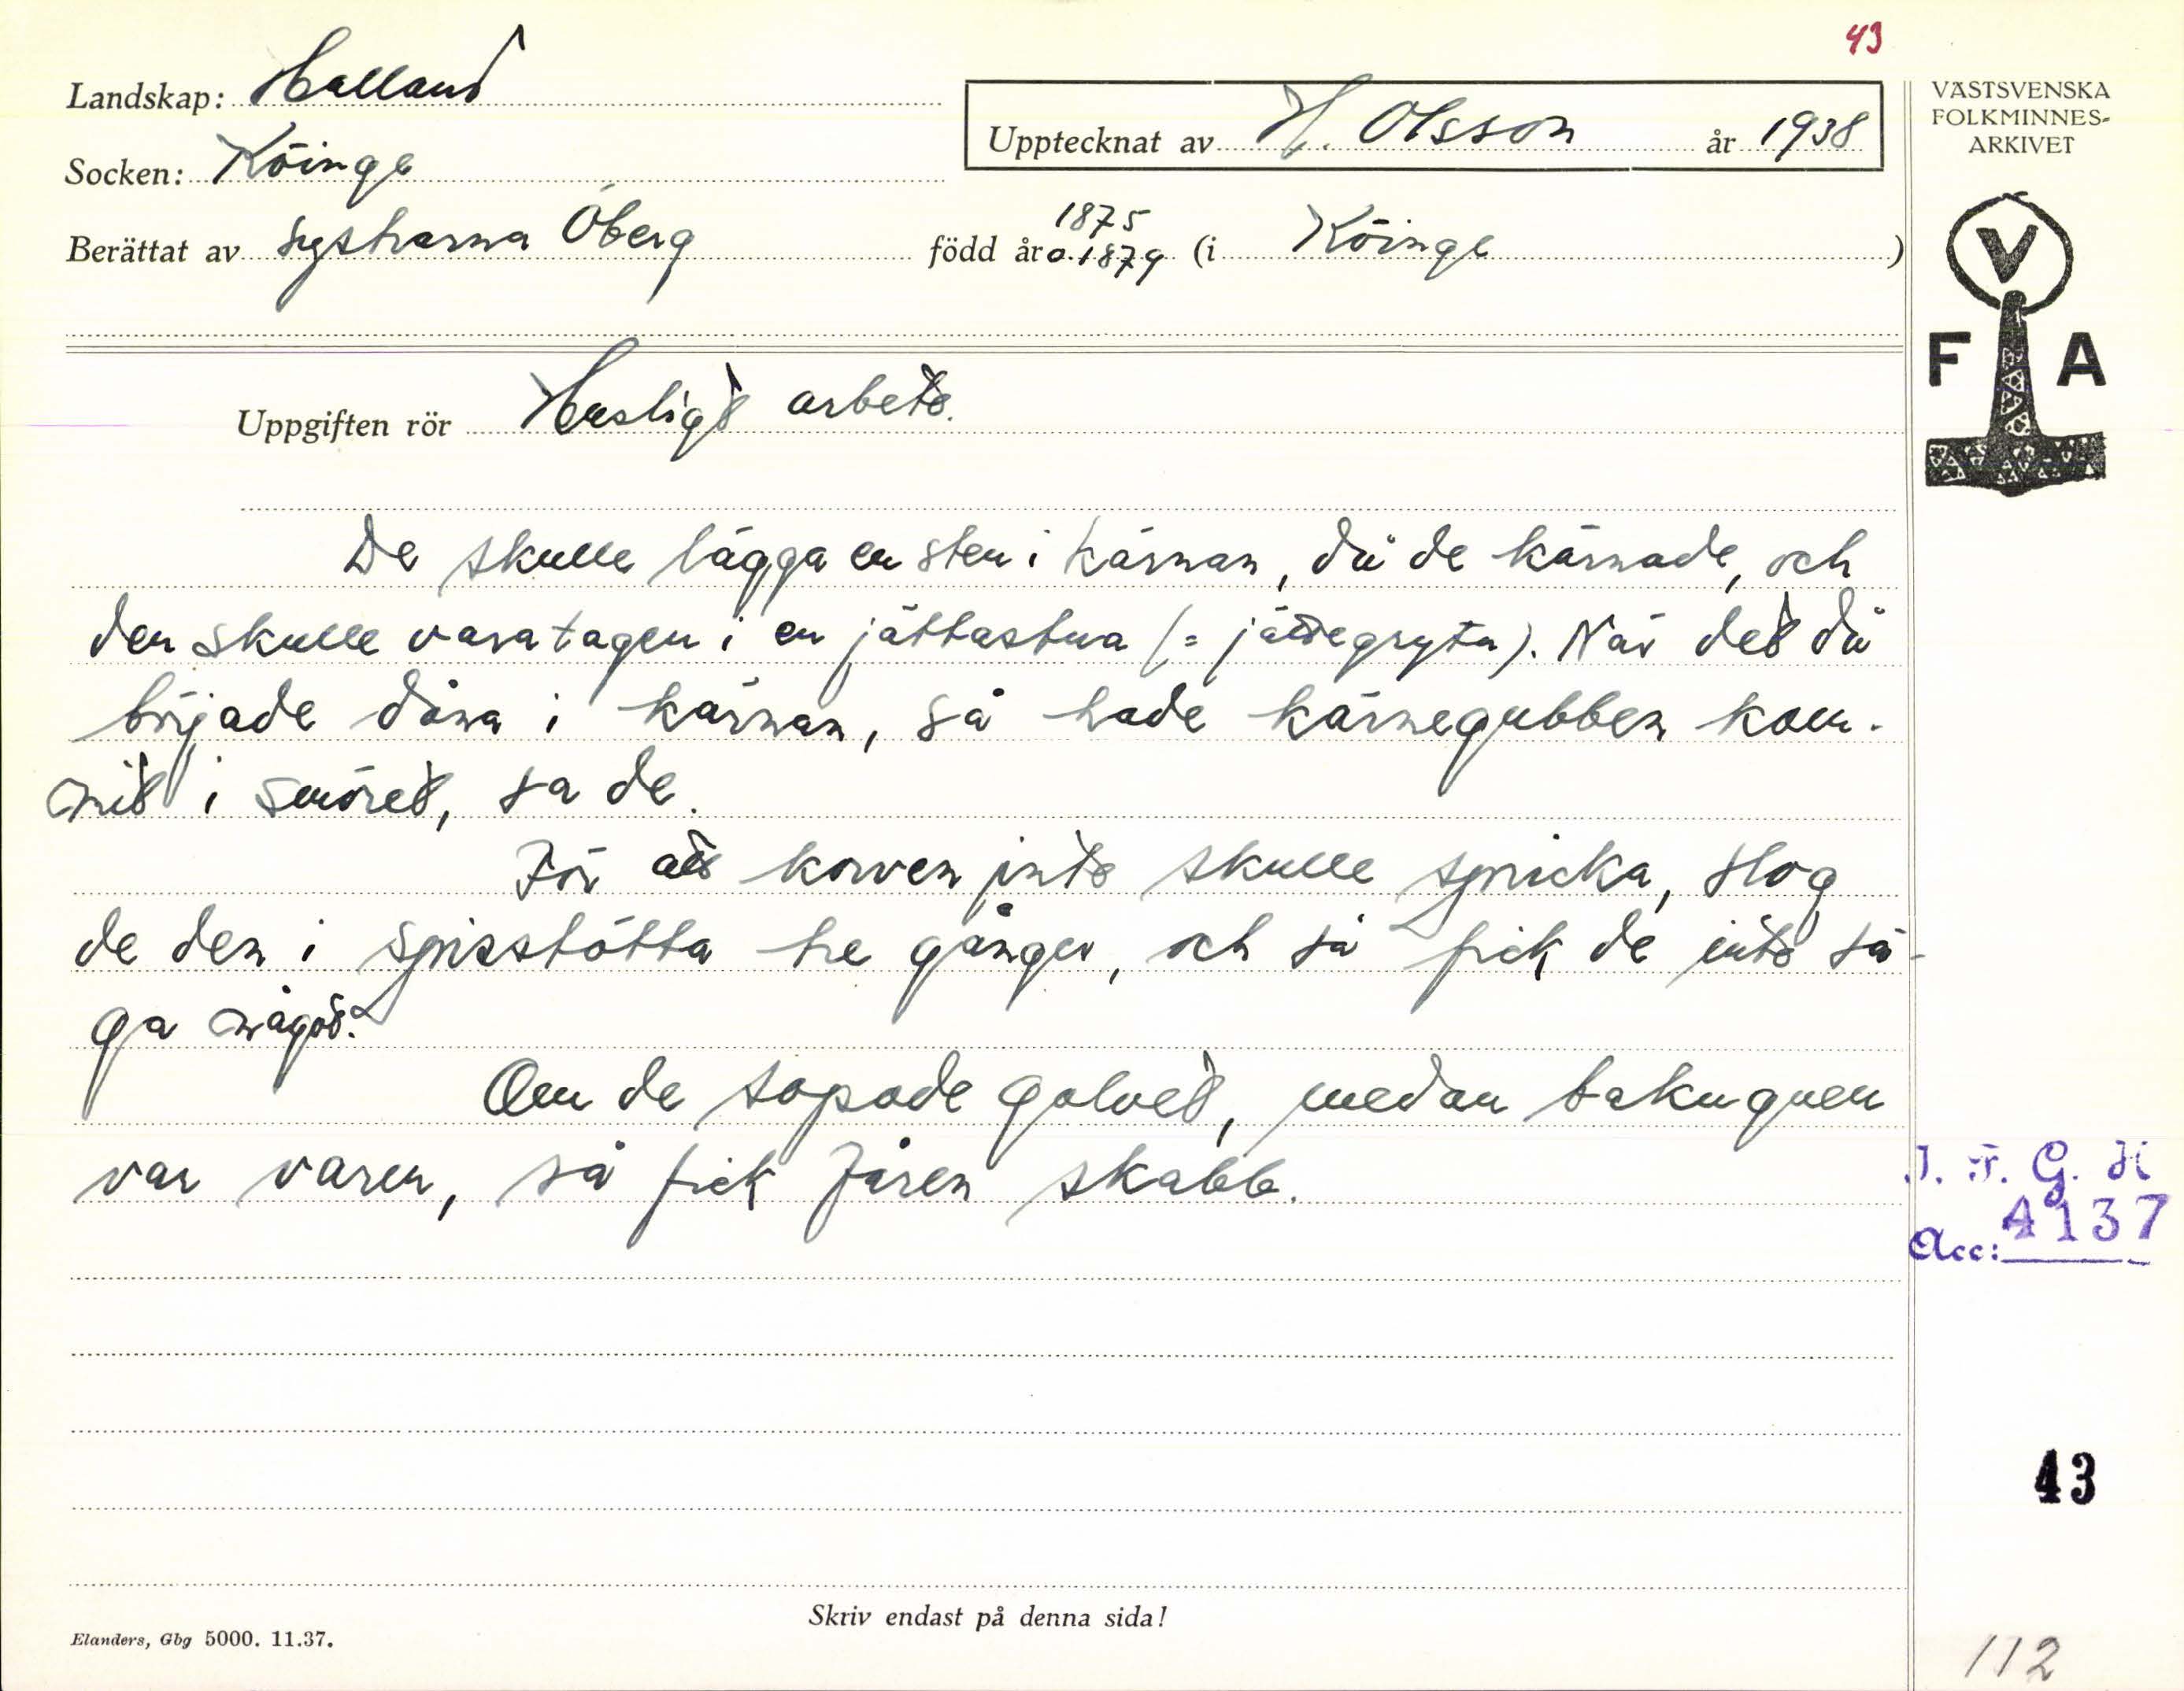 43
Landskap: Halland
Upptecknat av H. Olsson år 1938
VÄSTSVENSKA
FOLKMINNES-
ARKIVET
Socken: Köinge
Berättat av systrarna Öberg född år 1875 o. 1879 (i Köinge)
V
F A
Uppgiften rör Husligt arbete.
De skulle lägga en sten i kärnan, då de kärnade, och
den skulle vara tagen i en jättastua (= jättegryta). När det då
började dåna i kärnan, så hade kärnegubben kom-
mit i smöret, sa de.
För att korven inte skulle spricka, slog
de den i spisstötta tre gånger, och så fick de inte sä-
ga något.
Om de sopade golvet, medan bakugnen
var varm, så fick fåren skabb.
I. F. G. H
Acc: 4137
43
Skriv endast på denna sida!
Elanders, Gbg 5000. 11.37.
112